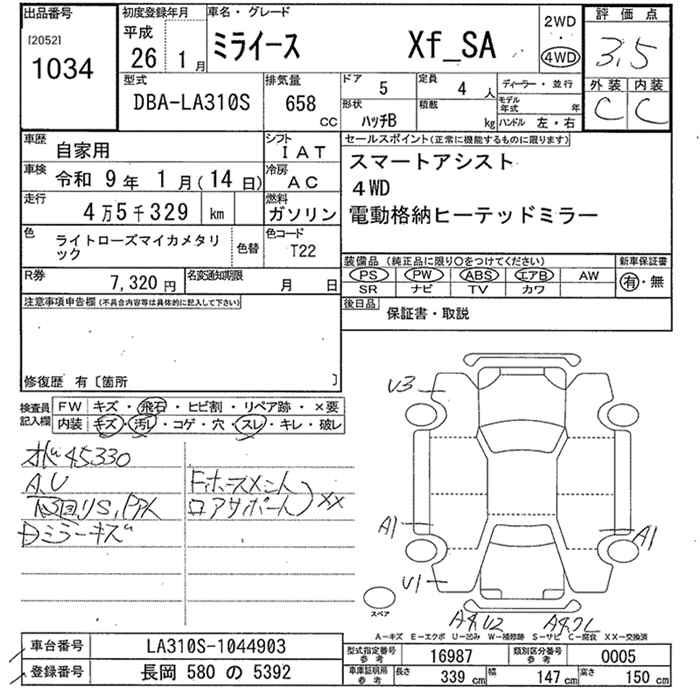 出品番号
[2052]
1034
初度登録年月
平成
26 1月
車名・グレード
ミライース Xf_SA
2WD
・
4WD
評価点
3.5
外装 内装
C C
型式
DBA-LA310S
排気量
658
CC
ドア 5
定員 4 人
形状 ハッチB
積載 kg
ディーラー・並行
モデル年式 年
ハンドル 左・右
車歴 自家用
シフト IAT
車検 令和 9年 1月(14日)
冷房 AC
走行 4万5千329 km
燃料 ガソリン
色 ライトローズマイカメタリック
色替
色コード T22
R券 7,320円
名変通知期限 月 日
セールスポイント(正常に機能するものに限ります)
スマートアシスト
4WD
電動格納ヒーテッドミラー
装備品(純正品に限り○をつけてください)
PS PW ABS エアB AW
SR ナビ TV カワ
新車保証書
有・無
後日品 保証書・取説
注意事項申告欄(不具合内容等は具体的に記入して下さい)
修復歴 有〔箇所 〕
検査員記入欄
FW キズ・飛石・ヒビ割・リペア跡・×要
内装 キズ・汚レ・コゲ・穴・スレ・キレ・破レ
45330
A,U
Dミラーキズ
ロアサポート
XX
U3
A1
A1
U1
スペア
A−キズ E−エクボ U−凹み W−補修跡 S−サビ C−腐食 XX−交換済
車台番号 LA310S-1044903
登録番号 長岡 580 の 5392
型式指定番号 参考 16987
類別区分番号 参考 0005
車庫証明用 参考 長さ 339 cm 幅 147 cm 高さ 150 cm